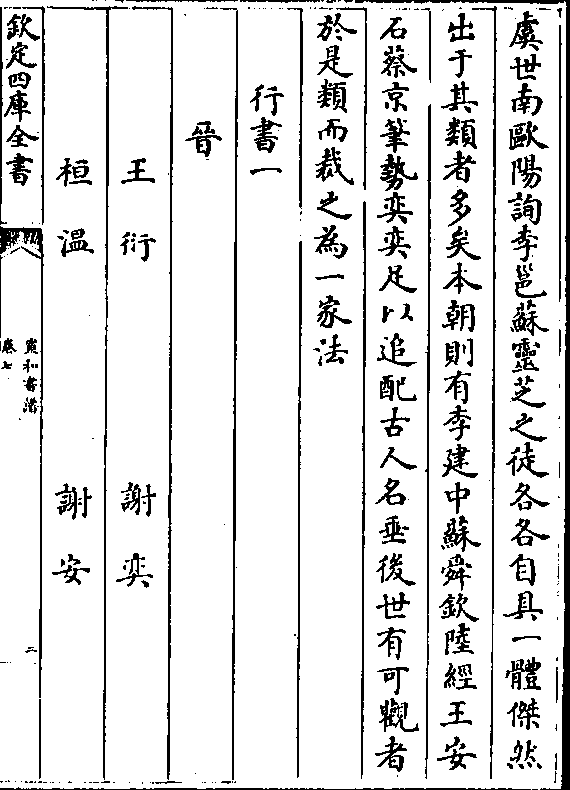 虞世南歐陽詢李邕蘇靈芝之徒各各自具一體傑然
出于其類者多矣本朝則有李建中蘇舜欽陸經王安
石蔡京筆勢奕奕足以追配古人名垂後世有可觀者
於是類而裁之為一家法
行書一
晉
王衍 謝奕
桓溫 謝安
欽定四庫全書
宣和書譜
卷七
二